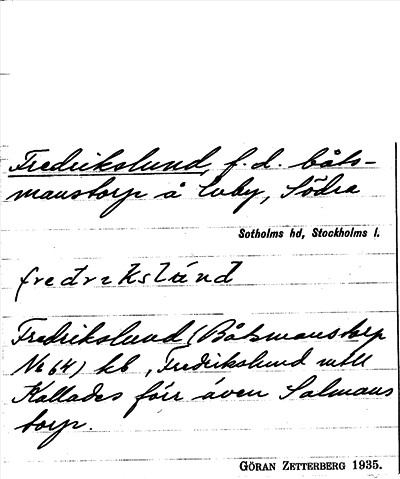 Fredrikslund, f.d. båts-
manstorp å Luby, Södra
Sotholms hd, Stockholms l.
fredrikslúnd
Fredrikslund (Båtsmanstorp
No 64) kb, Fredrikslund mtll
Kallades förr även Salmans
torp.
GÖRAN ZETTERBERG 1935.